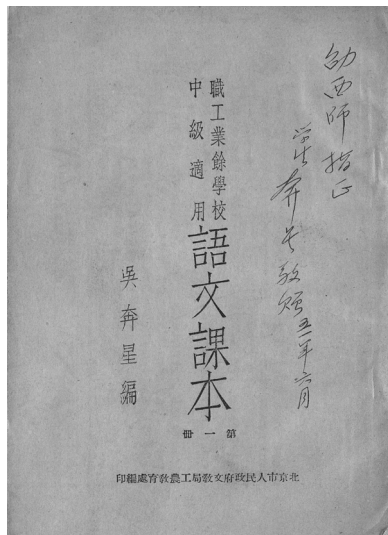 劭西師指正
學生奔星敬贈 五一年六月
職工業餘學校
中級適用
語文課本
第一冊
吳奔星編
北京市人民政府文教局工農教育處編印